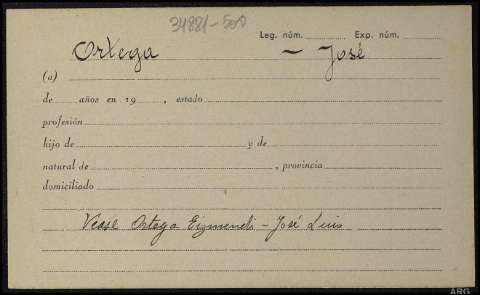 34881-500
Leg. núm. Exp. núm.
Ortega - José
(a)
de años en 19 , estado
profesión
hijo de y de
natural de , provincia
domiciliado
Vease Ortega Eizmendi - José Luis
ARG